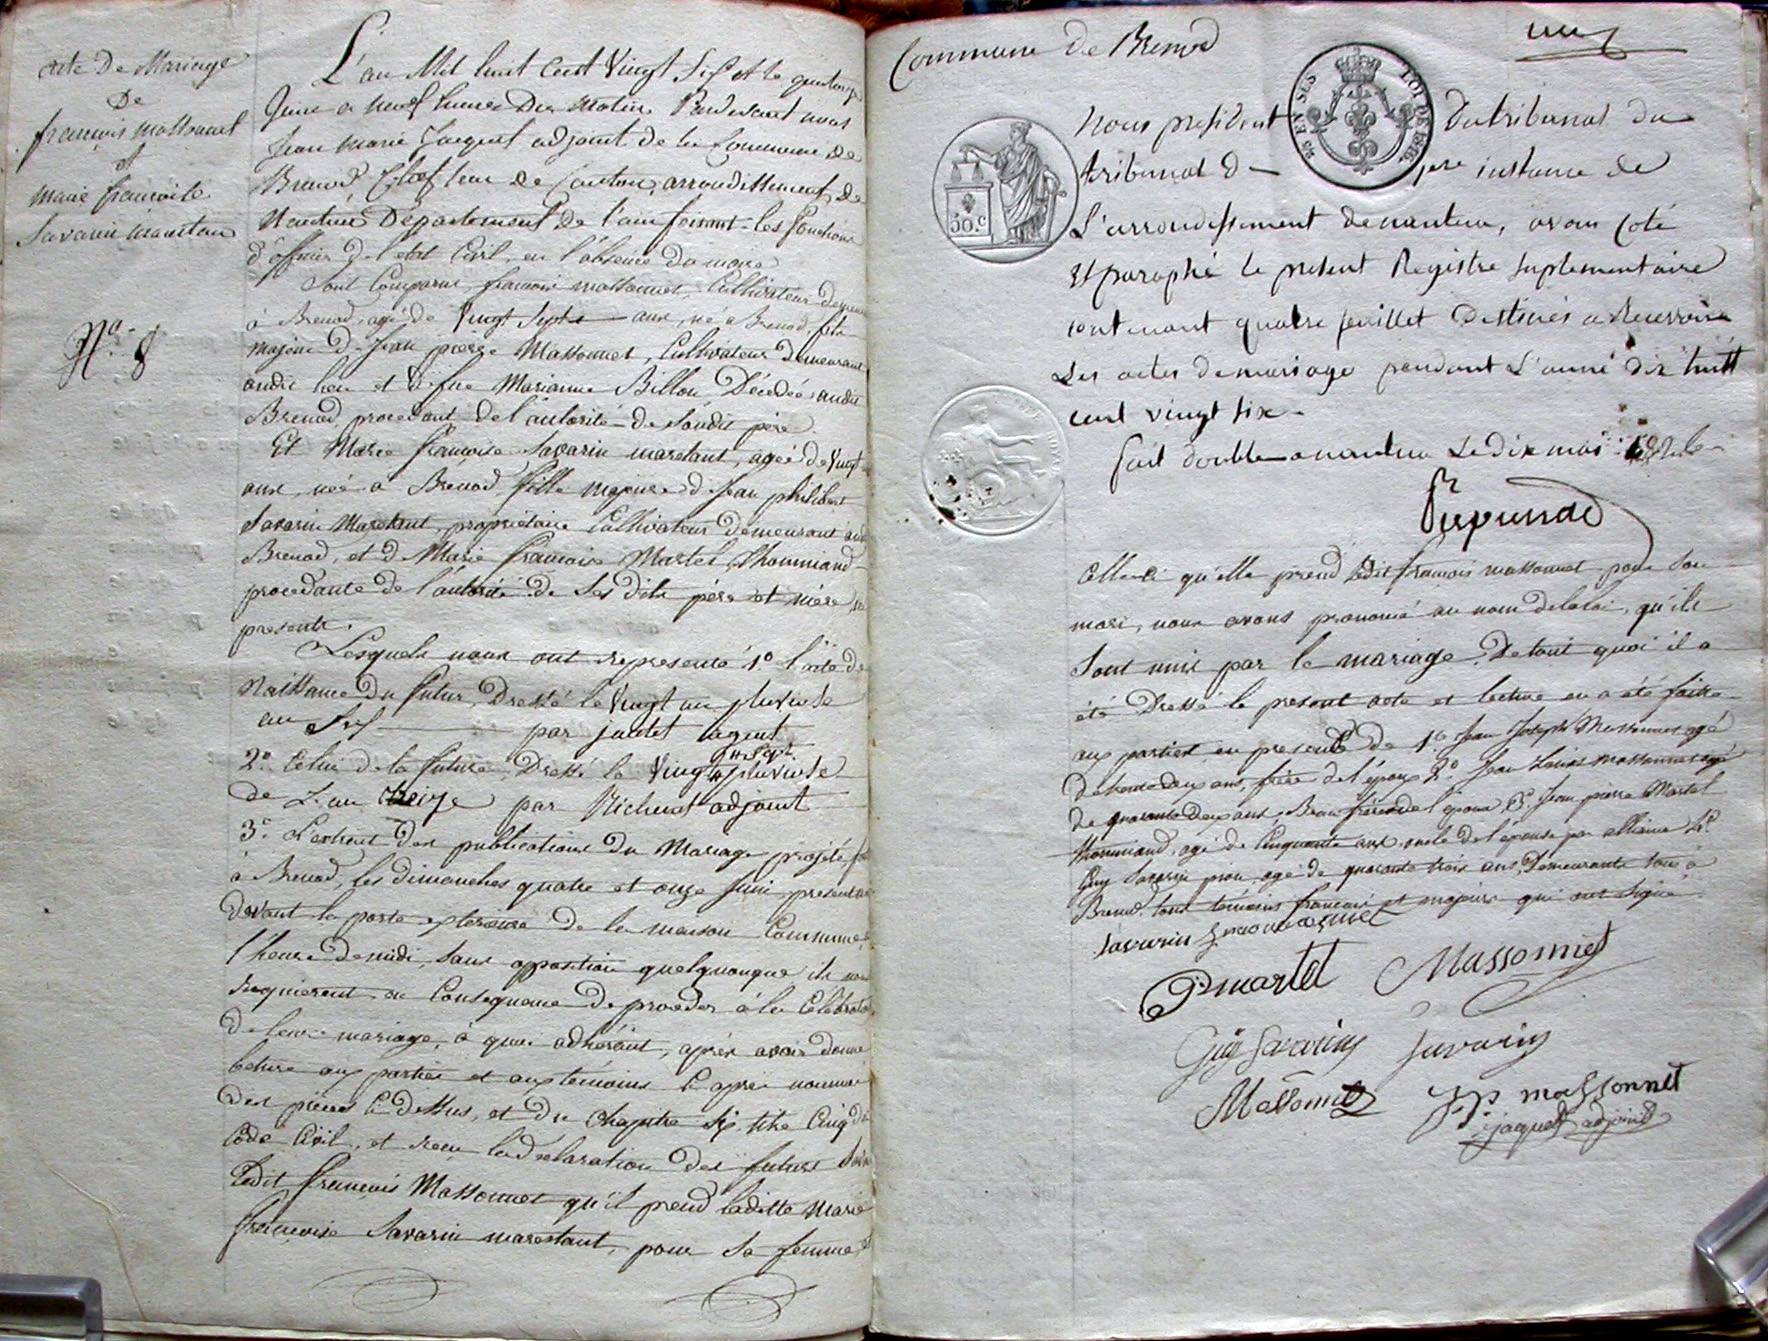 acte De Mariage
De
françois massonnet
et
marie françoise
Savarin marestan
N.º 8
L'an Mil huit Cent Vingt Six et le quatorze
Juin a neuf heures Du Matin Pardevant nous
Jean Marie Jacquet adjoint de la Commune de
Brenod Chef lieu De Canton, arrondissement de
Nantua Département De l'ain faisant les fonctions
d'officier De l'etat Civil, en l'absence du maire
Sont Comparus, françois massonnet, Cultivateur
à Brenod, agé de Vingt Sept ans, né a Brenod, fils
majeur de Jean pierre Massonnet, Cultivateur Demeurant
audit lieu et De fue Marianne Billon, Décédée audit
Brenod procedant De l'autorité de Soudit père
Et Marie françoise Savarin marestant, agée de Vingt
ans, née a Brenod fille majeure de Jean philibert
Savarin Marestant, propriétaire Cultivateur demeurant
Brenod, et de Marie françoise Martel Thommiand
procedante de l'autorité de Ses dits père et mère
presents.
Lesquels nous ont representé 1º l'acte de
Naissance Du futur, Dressé le Vingt un pluviose
an Sept par jautet agent
2º Celui de la future Dressé le Vingt Sept pluviose
De L'an treize par Richerot adjoint
3º L'extrait des publications Du Mariage projeté
à Brenod, les dimanches quatre et onze Juin present
devant la porte exterieure de la maison Commune
l'heure de midi, Sans opposition quelquonque ils nous
requierent en Consequence De proceder à la Célébration
De leur mariage, à quoi adhérant, après avoir donné
lecture aux parties et aux temoins Ci après nommés
Des pièces Ci dessus, et Du Chapitre Six titre Cinq du
Code Civil, et reçu la declaration Des futurs
Ledit françois Massonnet qu'il prend laditte Marie
françoise Savarin marestant, pour Sa femme, et
Commune De Brenod
Nous president du tribunal du
tribunal D 1ere instance De
50.C
L'arrondissement de nantua, avons Coté
Et paraphé le present Registre Suplementaire
contenant quatre feuillet Destinés a Recevoir
Les actes De mariage pendant L'année dix huit
cent vingt six.
Fait double a nantua Le dix mai
Celle Ci qu'elle prend Ledit françois massonnet pour Son
mari, nous avons prononcé au nom de la loi, qu'ils
Sont unis par le mariage. De tout quoi il a
été Dressé le present acte et lecture en a été faitte
aux parties en presence de 1º Jean Joseph Massonnet agé
De trente deux ans, frère de l'époux 2º Jean Louis massonnet agé
De quarante deux ans, Beau frère de l'époux, 3º Jean pierre Martel
Thommiand, agé de Cinquante ans, oncle de l'épouse par alliance 4º
Guy Savarin agé de quarante trois ans, Demeurants tous à
Brenod tous témoins français et majeurs qui ont Signé.
Savarin
Pmartel Massonnet
Guy Savarin Savarin
Massonnet J.P. massonnet
jacquet adjoint